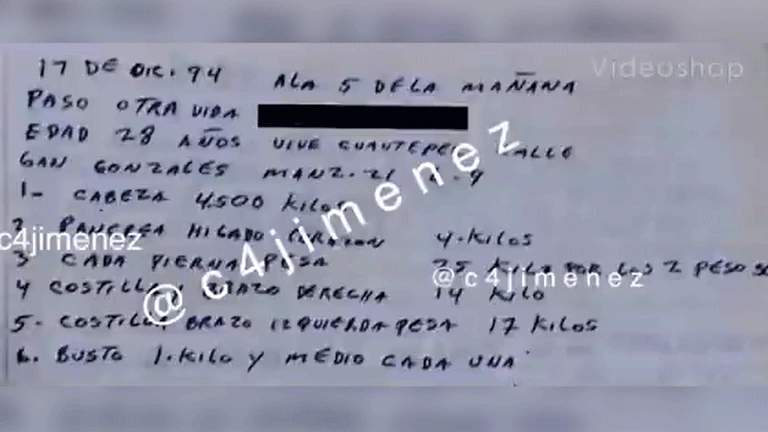 Videoshop
17 DE DIC. 94 ALA 5 DE LA MAÑANA
PASO OTRA VIDA
EDAD 28 AÑOS VIVE CUAUTEPEC CALLE
GAN GONZALES MANZ. 21
1- CABEZA 4.500 KILOS
c4jimenez
HIGADO CORAZON 4. KILOS
3 CADA PIERNA PESA 25 KILO POR LOS 2 PESO
@c4jimenez
@c4jimenez
4 COSTILLA BRAZO DERECHA 14 KILO
5- COSTILLA BRAZO IZQUIERDA PESA 17 KILOS
6. BUSTO 1. KILO Y MEDIO CADA UNA